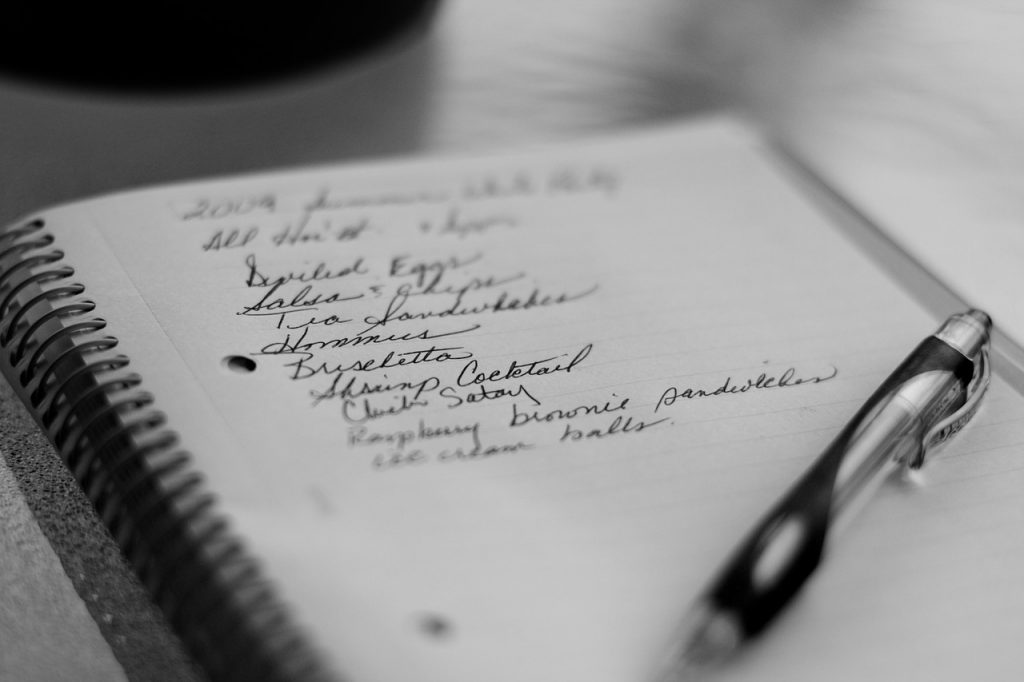 2009 Summer White Party
All Hait
Deviled Eggs
Salsa & Chips
Tea Sandwiches
Hommus
Bruschetta
Shrimp Cocktail
Satay
Raspberry brownie sandwiches
ice cream balls.